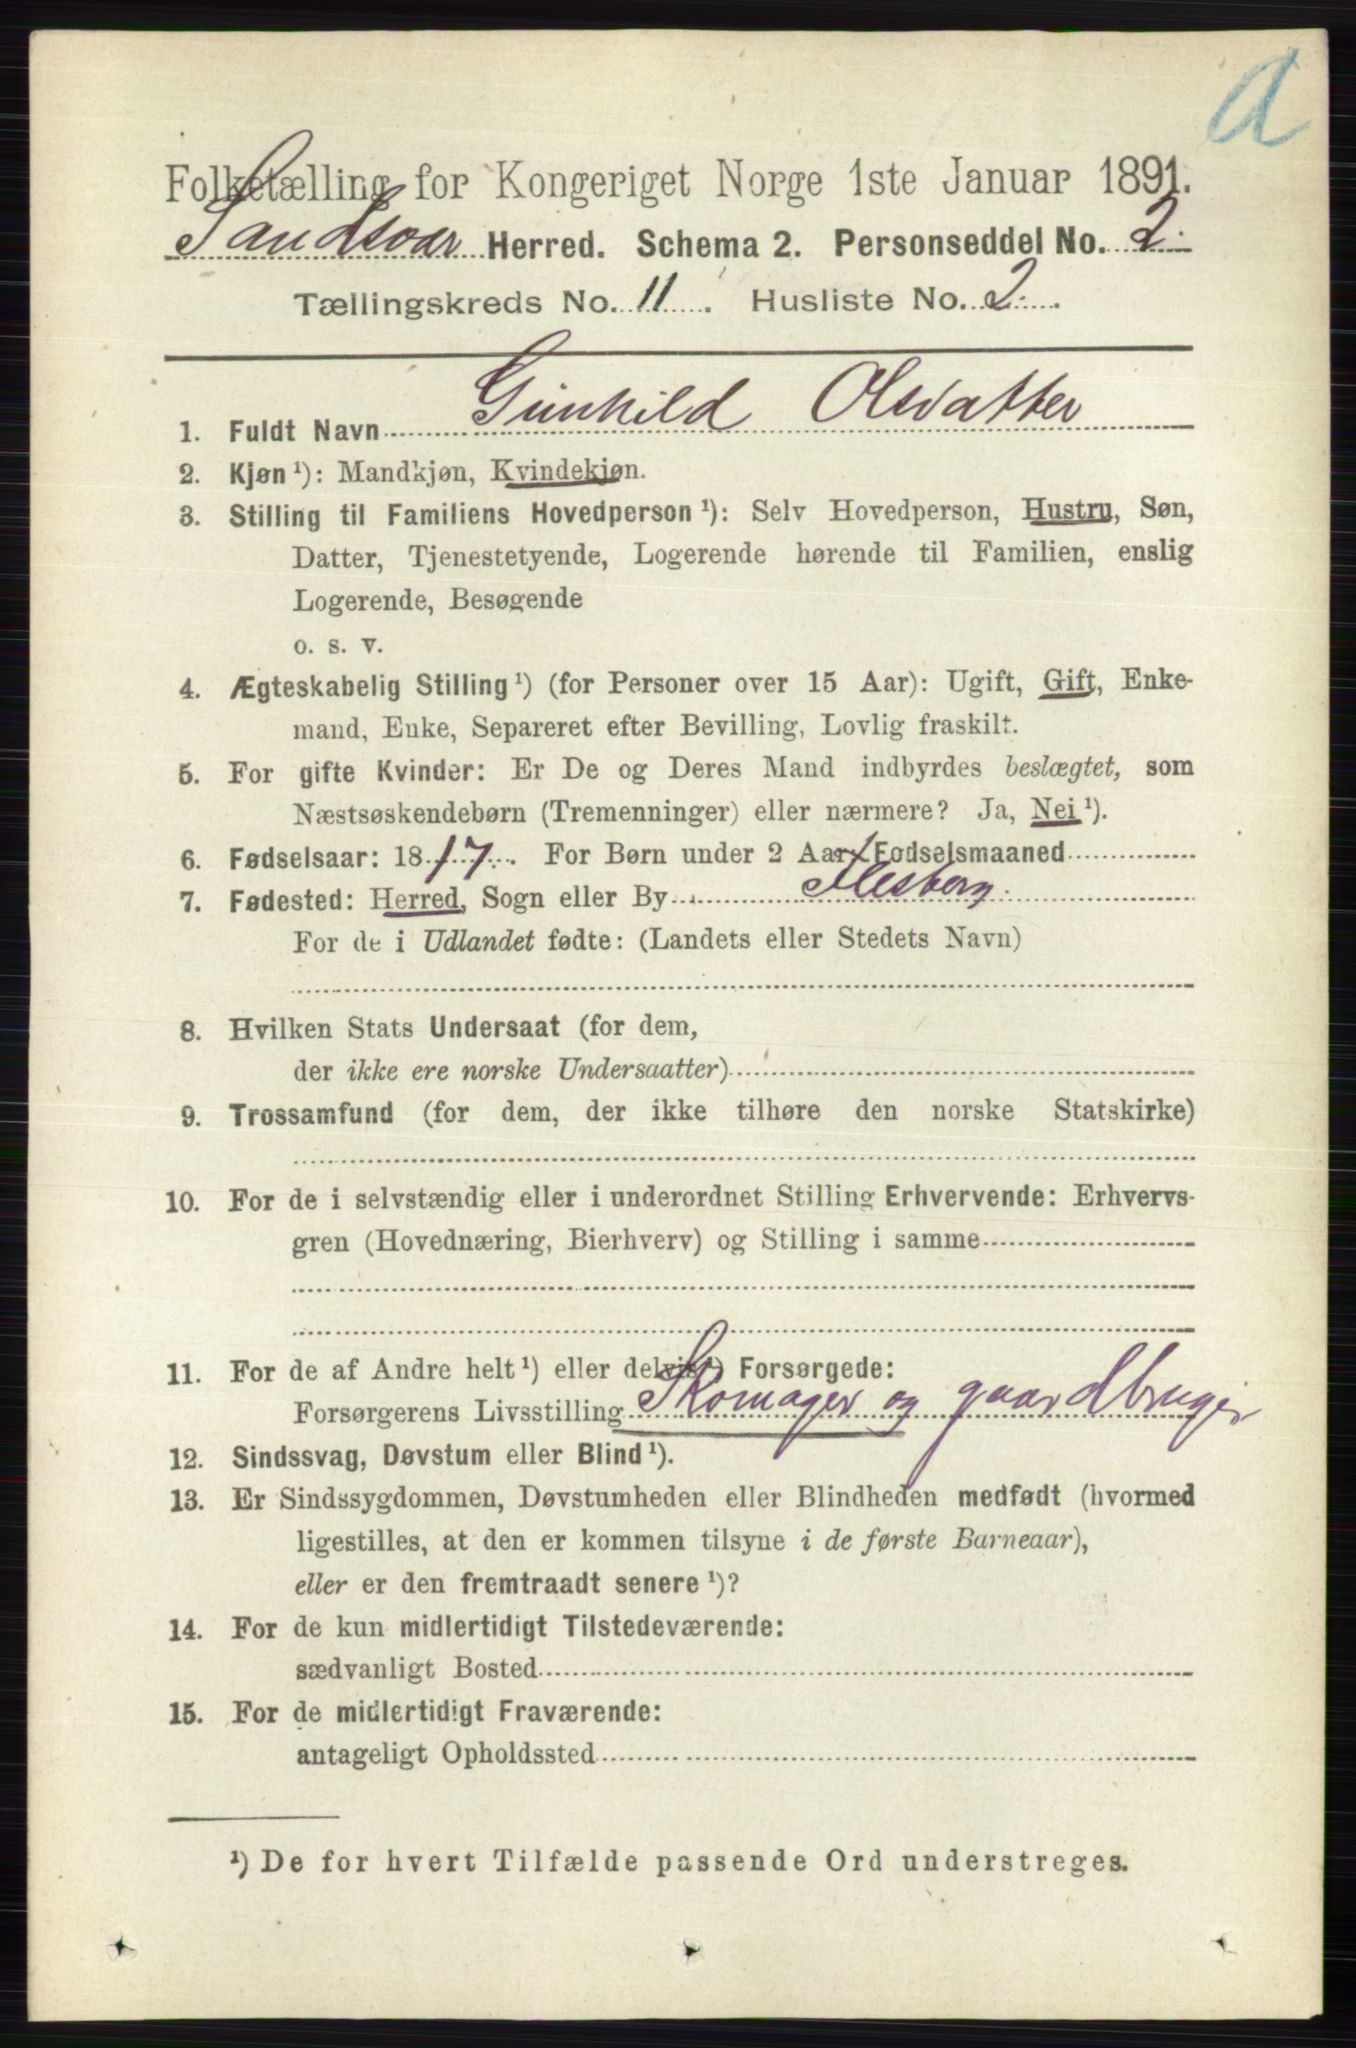 A
Folketælling for Kongeriget Norge 1ste Januar 1891.
Sandsvær Herred. Schema 2. Personseddel No. 2.
Tællingskreds No. 11. Husliste No. 2.
1. Fuldt Navn Gunhild Olsdatter
2. Kjøn ¹): Mandkjøn, Kvindekjøn.
3. Stilling til Familiens Hovedperson ¹): Selv Hovedperson, Hustru, Søn,
Datter, Tjenestetyende, Logerende hørende til Familien, enslig
Logerende, Besøgende
o. s. v.
4. Ægteskabelig Stilling ¹) (for Personer over 15 Aar): Ugift, Gift, Enke-
mand, Enke, Separeret efter Bevilling, Lovlig fraskilt.
5. For gifte Kvinder: Er De og Deres Mand indbyrdes beslægtet, som
Næstsøskendebørn (Tremenninger) eller nærmere? Ja, Nei ¹).
6. Fødselsaar: 1817. For Børn under 2 Aar: Fødselsmaaned
7. Fødested: Herred, Sogn eller By Flesberg.
For de i Udlandet fødte: (Landets eller Stedets Navn)
8. Hvilken Stats Undersaat (for dem,
der ikke ere norske Undersaatter)
9. Trossamfund (for dem, der ikke tilhøre den norske Statskirke)
10. For de i selvstændig eller i underordnet Stilling Erhvervende: Erhvervs-
gren (Hovednæring, Bierhverv) og Stilling i samme
11. For de af Andre helt ¹) eller delvis ¹) Forsørgede:
Forsørgerens Livsstilling Skomager og gaardbruger
12. Sindssvag, Døvstum eller Blind ¹).
13. Er Sindssygdommen, Døvstumheden eller Blindheden medfødt (hvormed
ligestilles, at den er kommen tilsyne i de første Barneaar),
eller er den fremtraadt senere ¹)?
14. For de kun midlertidigt Tilstedeværende:
sædvanligt Bosted
15. For de midlertidigt Fraværende:
antageligt Opholdssted
¹) De for hvert Tilfælde passende Ord understreges.